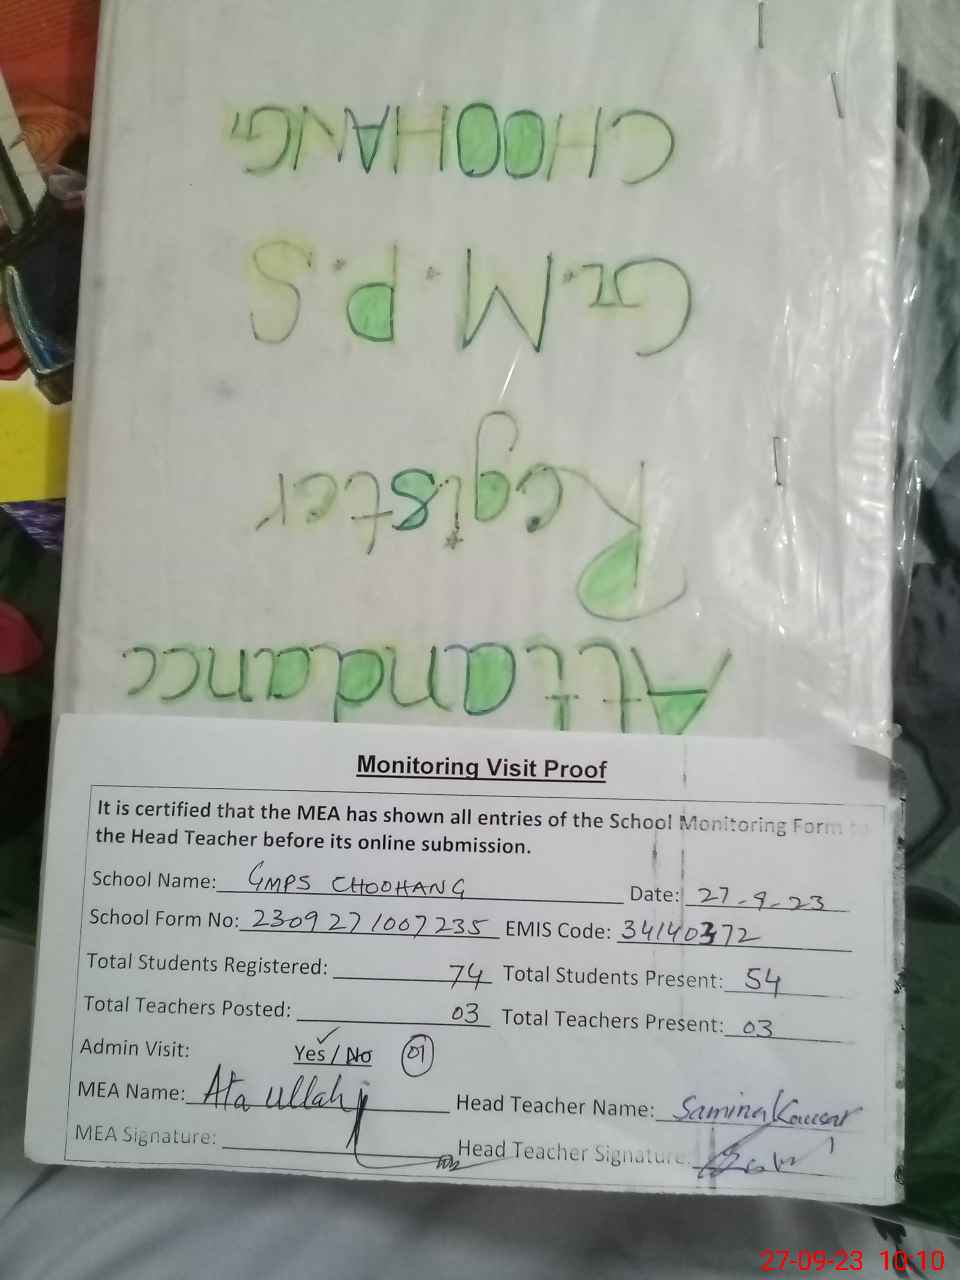 Attandance
Register
G.M.P.S
CHOOHANG
Monitoring Visit Proof
It is certified that the MEA has shown all entries of the School Monitoring Form to
the Head Teacher before its online submission.
School Name: GMPS CHOOHANG Date: 27-9-23
School Form No: 2309271007235 EMIS Code: 34140372
Total Students Registered: 74 Total Students Present: 54
Total Teachers Posted: 03 Total Teachers Present: 03
Admin Visit: Yes / No 01
MEA Name: Ata ullah Head Teacher Name: Samina Kausar
MEA Signature: Head Teacher Signature:
27-09-23 10:10